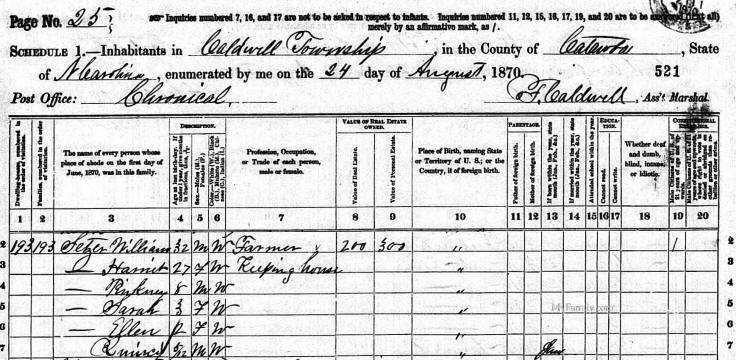 Page No. 25
Inquiries numbered 7, 16, and 17 are not to be asked in respect to infants. Inquiries numbered 11, 12, 15, 16, 17, 19, and 20 are to be answered (if at all)
merely by an affirmative mark, as /.
SCHEDULE 1.—Inhabitants in Caldwell Township, in the County of Catawba, State
of N Carolina, enumerated by me on the 24 day of August, 1870. 521
Post Office: Chronical, F. Caldwell, Ass't Marshal.
DESCRIPTION. VALUE OF REAL ESTATE OWNED. PARENTAGE. EDUCATION.
The name of every person whose place of abode on the first day of June, 1870, was in this family.
Profession, Occupation, or Trade of each person, male or female.
Value of Real Estate.
Value of Personal Estate.
Place of Birth, naming State or Territory of U. S.; or the Country, if of foreign birth.
Father of foreign birth.
Mother of foreign birth.
If born within the year, state month (Jan., Feb., &c.)
If married within the year, state month (Jan., Feb., &c.)
Attended school within the year.
Cannot read.
Cannot write.
Whether deaf and dumb, blind, insane, or idiotic.
1 2 3 4 5 6 7 8 9 10 11 12 13 14 15 16 17 18 19 20
2 193 193 Setzer William 32 M W Farmer 200 300 " 1 2
3 — Harriet 27 F W Keeping house " 3
— Pinkney 8 M W "
5 — Sarah 3 F W " 5
6 — Ellen F W " 6
7 Quincy M W " 7